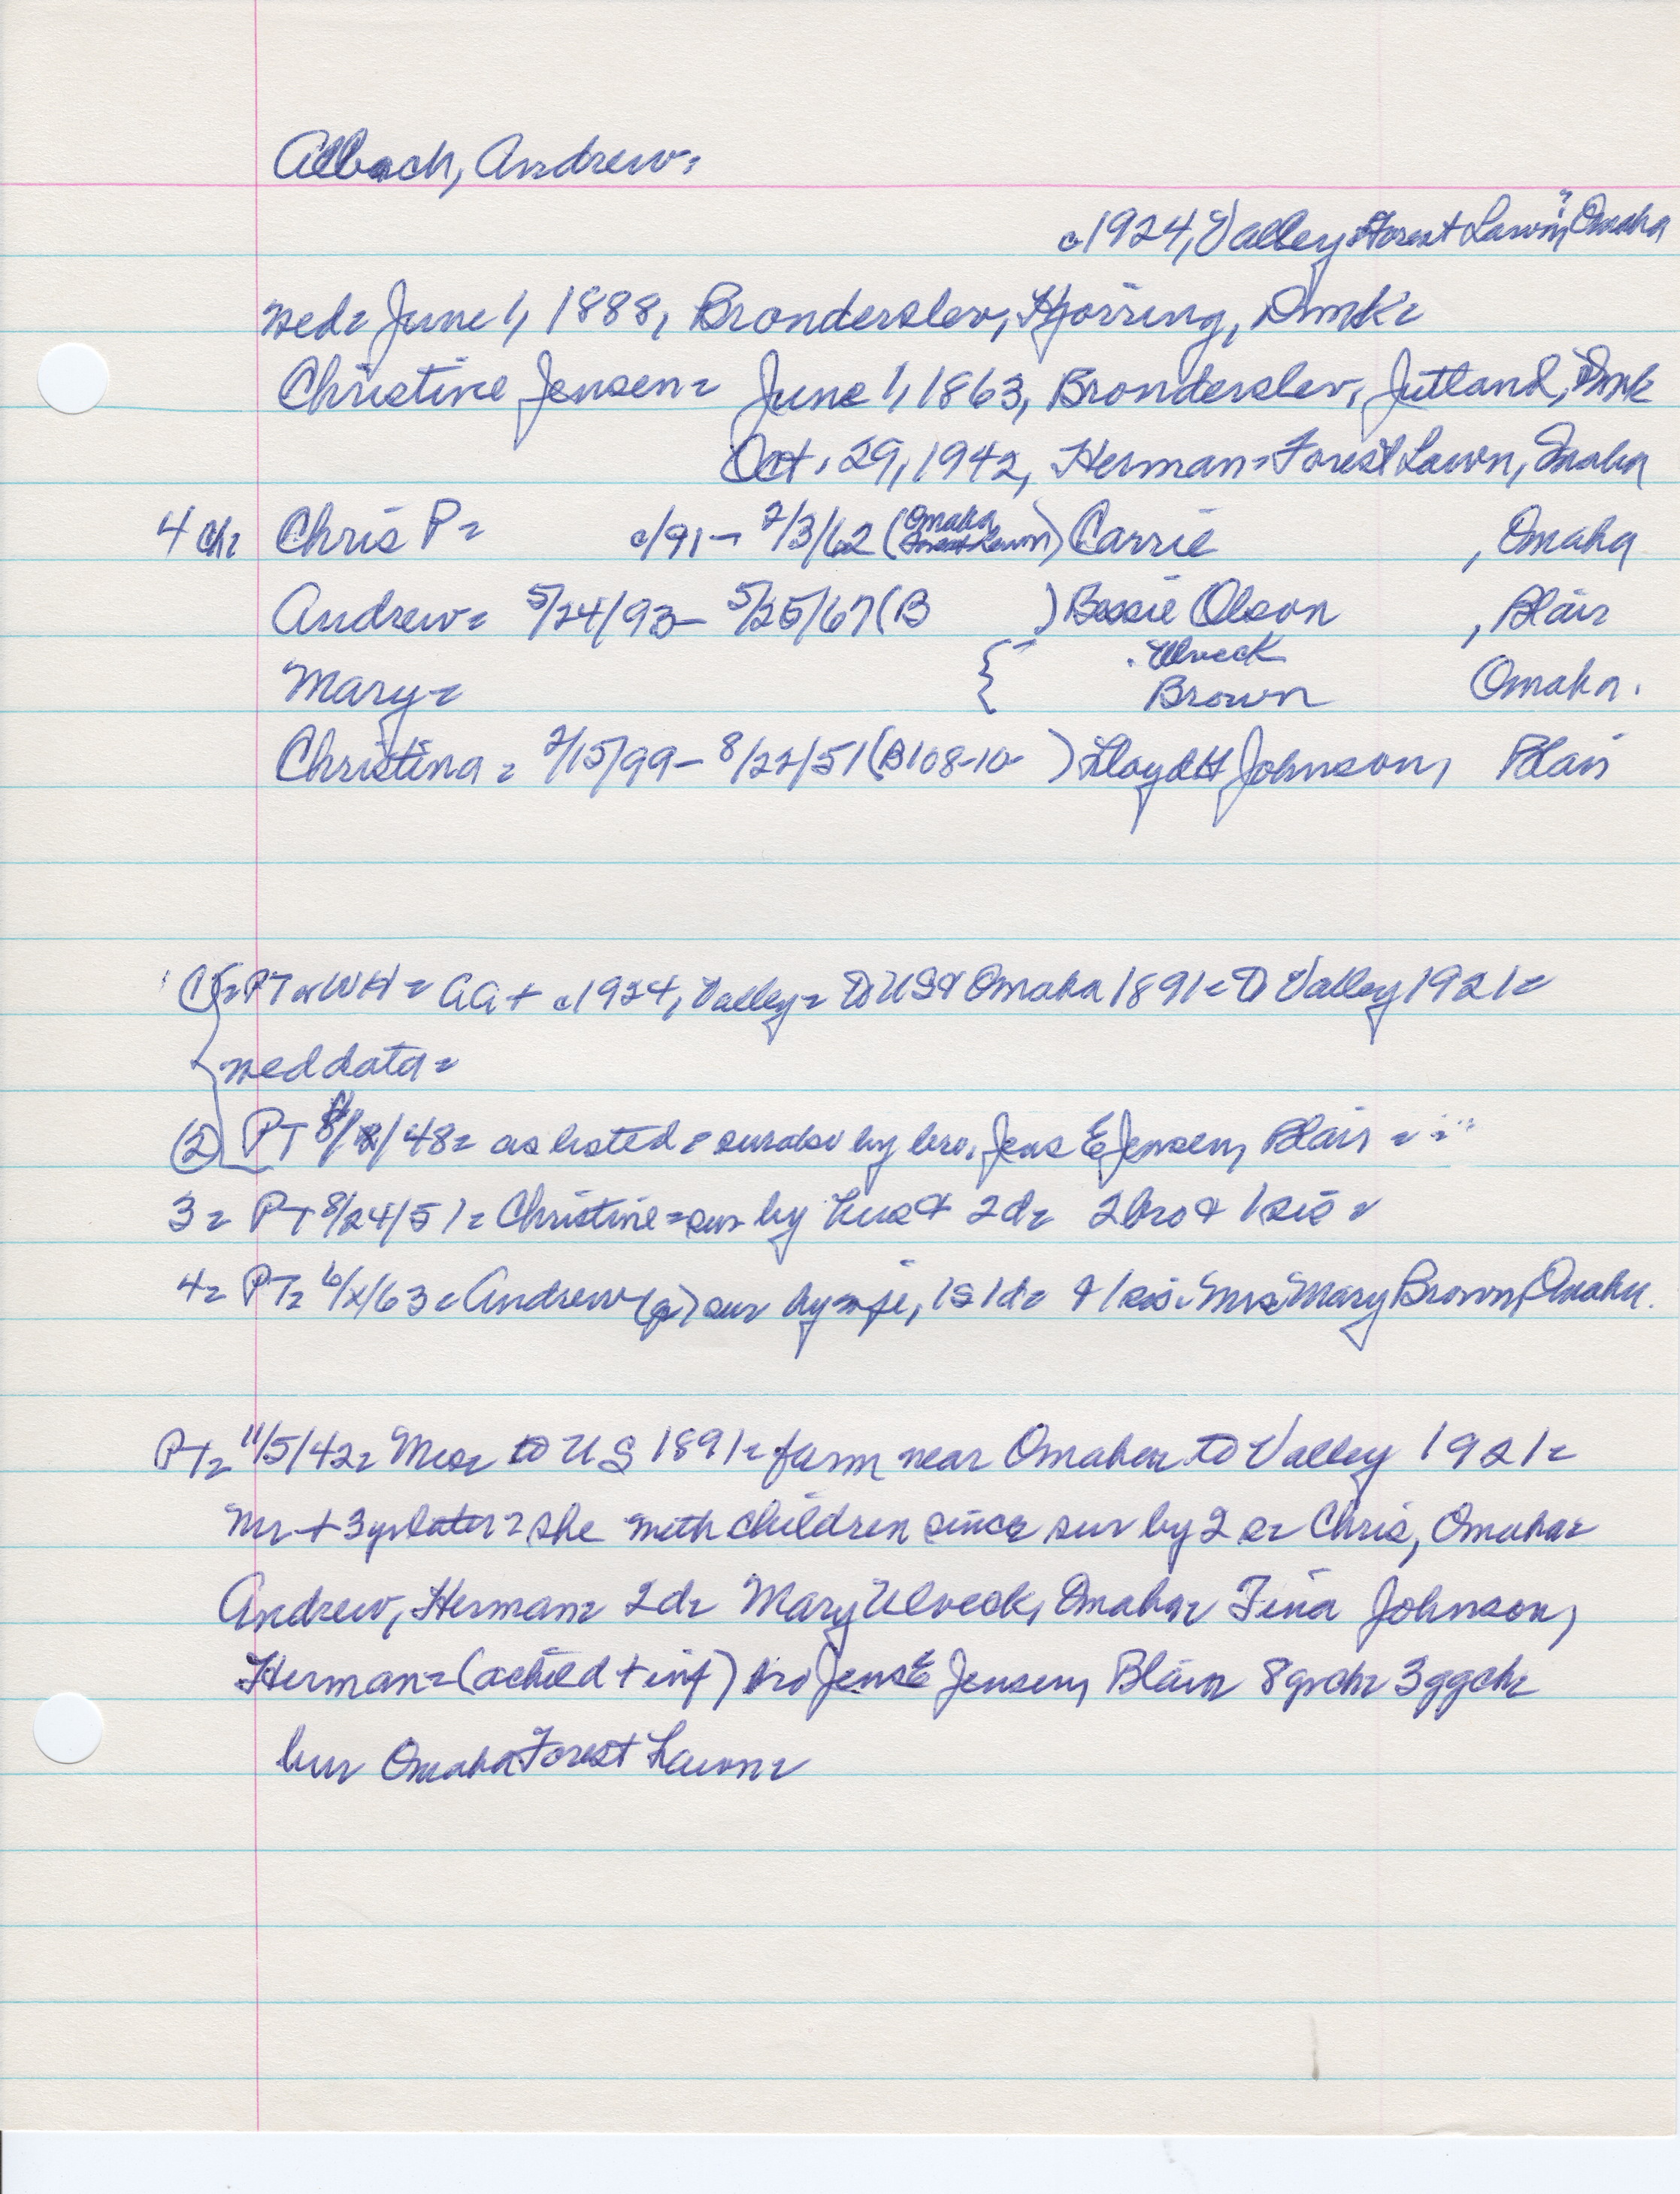 Albach, Andrew=
c1924, Valley=Forest Lawn, Omaha
wed= June 1, 1888, Bronderslev, Hjorring, Dmk=
Christine Jensen= June 1, 1863, Bronderslev, Jutland, Dmk
Oct. 29, 1942, Herman=Forest Lawn, Omaha
4 ch= Chris P= c/91- 2/3/62 (Omaha Forest Lawn) Carrie , Omaha
Andrew= 5/24/93- 5/25/67 (B ) Bessie Olson , Blair
Mary= { Ulveck
Brown Omaha.
Christina= 2/15/99- 8/22/51 (B108-10- ) Lloyd H Johnson, Blair
(1)= PT & WH= AA + c1924, Valley= to US & Omaha 1891= to Valley 1921=
wed data=
(2) PT 48= as listed= sur also by bro, Jens E Jensen, Blair=
3= PT 8/24/51= Christine=sur by hus & 2d= 2 bro & 1 sis=
4= PT= 6/x/63= Andrew sur by 1s 1d= & 1 sis. Mrs Mary Brown, Omaha.
PT= 11/5/42= to US 1891= farm near Omaha= to Valley 1921=
Mr + 3 yr later= she with children since sur by 2 s= Chris, Omaha=
Andrew, Herman= 2d= Mary Ulveck, Omaha= Tina Johnson,
Herman= (a child + inf) bro Jens E Jensen, Blair= 8 grch= 3 ggch=
bur Omaha Forest Lawn=